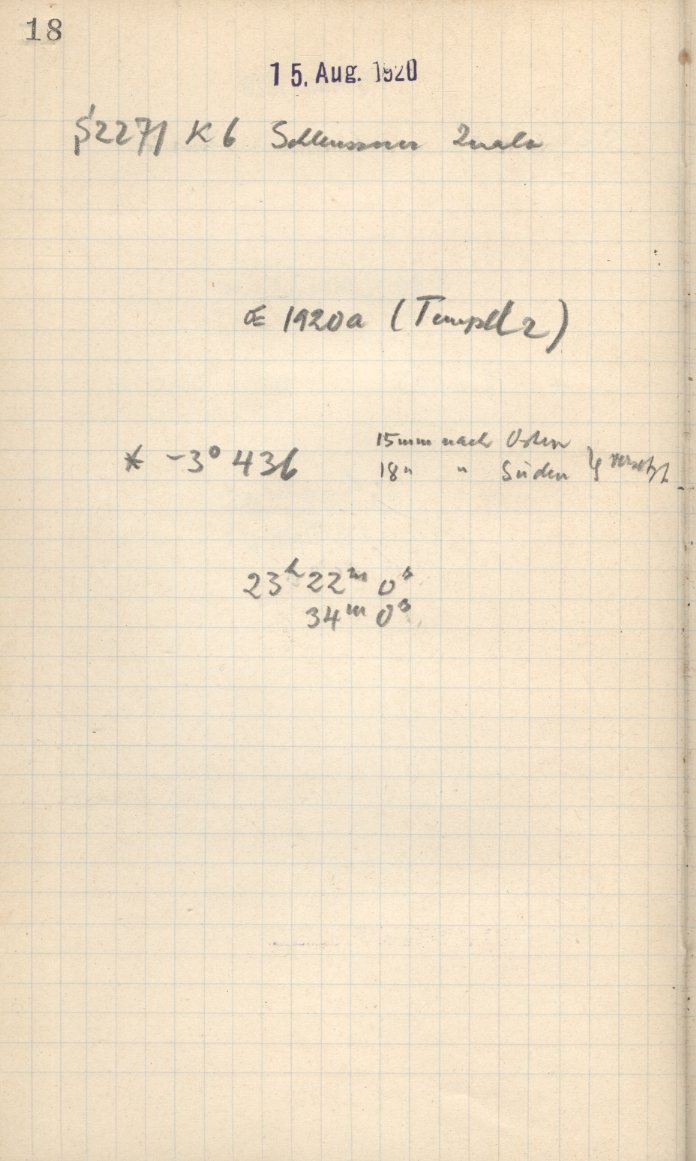 18
15. Aug. 1920
2271 K 6 Schleussner
1920a (Tempel 2)
* -3° 436 15mm nach Osten
18" " Süden versetzt
23h 22m 0s
34m 0s